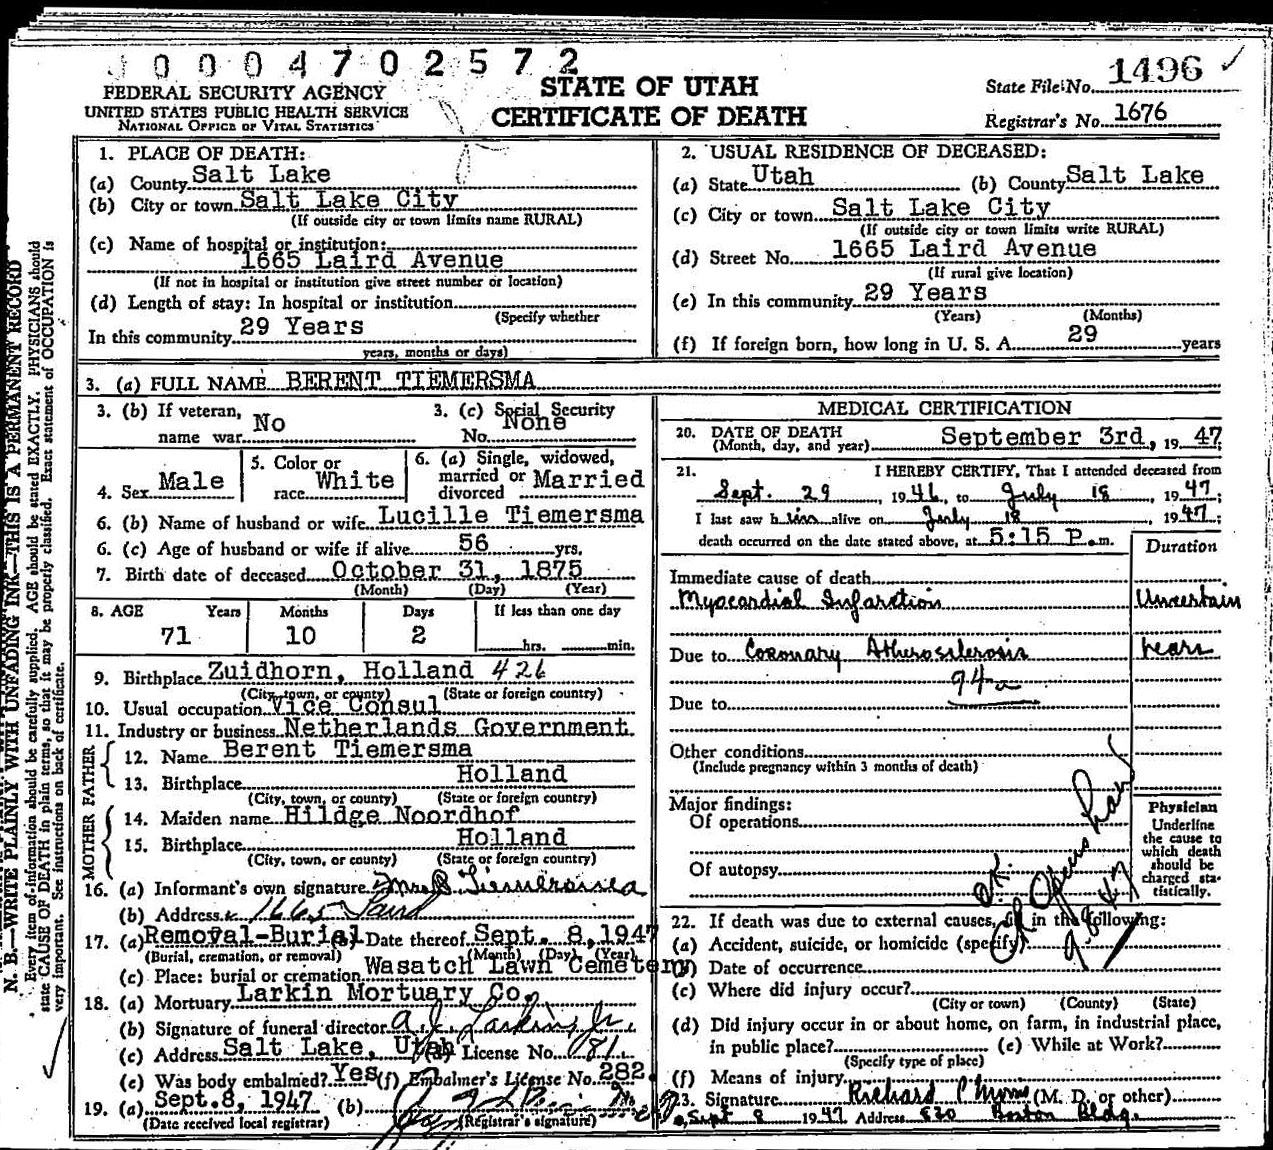 0004702572
FEDERAL SECURITY AGENCY
UNITED STATES PUBLIC HEALTH SERVICE
NATIONAL OFFICE OF VITAL STATISTICS
STATE OF UTAH
CERTIFICATE OF DEATH
State File No. 1496 ✓
Registrar's No. 1676
N. B.—WRITE PLAINLY WITH UNFADING INK—THIS IS A PERMANENT RECORD
Every item of information should be carefully supplied. AGE should be stated EXACTLY. PHYSICIANS should
state CAUSE OF DEATH in plain terms, so that it may be properly classified. Exact statement of OCCUPATION is
very important. See instructions on back of certificate.
1. PLACE OF DEATH:
(a) County Salt Lake
(b) City or town Salt Lake City
(If outside city or town limits name RURAL)
(c) Name of hospital or institution:
1665 Laird Avenue
(If not in hospital or institution give street number or location)
(d) Length of stay: In hospital or institution
(Specify whether
In this community 29 Years
years, months or days)
2. USUAL RESIDENCE OF DECEASED:
(a) State Utah (b) County Salt Lake
(c) City or town Salt Lake City
(If outside city or town limits write RURAL)
(d) Street No. 1665 Laird Avenue
(If rural give location)
(e) In this community 29 Years
(Years) (Months)
(f) If foreign born, how long in U. S. A. 29 years
3. (a) FULL NAME BERENT TIEMERSMA
3. (b) If veteran, name war No
3. (c) Social Security No. None
4. Sex Male
5. Color or race White
6. (a) Single, widowed, married or divorced Married
6. (b) Name of husband or wife Lucille Tiemersma
6. (c) Age of husband or wife if alive 56 yrs.
7. Birth date of deceased October 31, 1875
(Month) (Day) (Year)
8. AGE Years Months Days If less than one day
71 10 2 hrs. min.
9. Birthplace Zuidhorn, Holland 426
(City, town, or county) (State or foreign country)
10. Usual occupation Vice Consul
11. Industry or business Netherlands Government
FATHER
12. Name Berent Tiemersma
13. Birthplace Holland
(City, town, or county) (State or foreign country)
MOTHER
14. Maiden name Hildge Noordhof
15. Birthplace Holland
(City, town, or county) (State or foreign country)
16. (a) Informant's own signature Mrs B. Tiemersma
(b) Address 1665 Laird
17. (a) Removal-Burial (b) Date thereof Sept. 8, 1947
(Burial, cremation, or removal) (Month) (Day) (Year)
(c) Place: burial or cremation Wasatch Lawn Cemetery
18. (a) Mortuary Larkin Mortuary Co.
(b) Signature of funeral director A. J. Larkin Jr.
(c) Address Salt Lake, Utah (d) License No. 181
(e) Was body embalmed? Yes (f) Embalmer's License No. 282
19. (a) Sept. 8, 1947 (b)
(Date received local registrar) (Registrar's signature)
MEDICAL CERTIFICATION
20. DATE OF DEATH
(Month, day, and year) September 3rd, 19 47
21. I HEREBY CERTIFY, That I attended deceased from
Sept. 29, 1946, to July 18, 1947;
I last saw him alive on July 18, 1947;
death occurred on the date stated above, at 5:15 P.m.
Duration
Immediate cause of death
Myocardial Infarction Uncertain
Due to Coronary Atherosclerosis Years
94a
Due to
Other conditions
(Include pregnancy within 3 months of death)
Major findings:
Of operations
Of autopsy
Physician
Underline
the cause to
which death
should be
charged sta-
tistically.
O.K.
9.8.47
22. If death was due to external causes, fill in the following:
(a) Accident, suicide, or homicide (specify)
(b) Date of occurrence
(c) Where did injury occur?
(City or town) (County) (State)
(d) Did injury occur in or about home, on farm, in industrial place,
in public place? (e) While at Work?
(Specify type of place)
(f) Means of injury
23. Signature Richard P. (M. D. or other)
Sept 8 1947 Address 830 Boston Bldg.